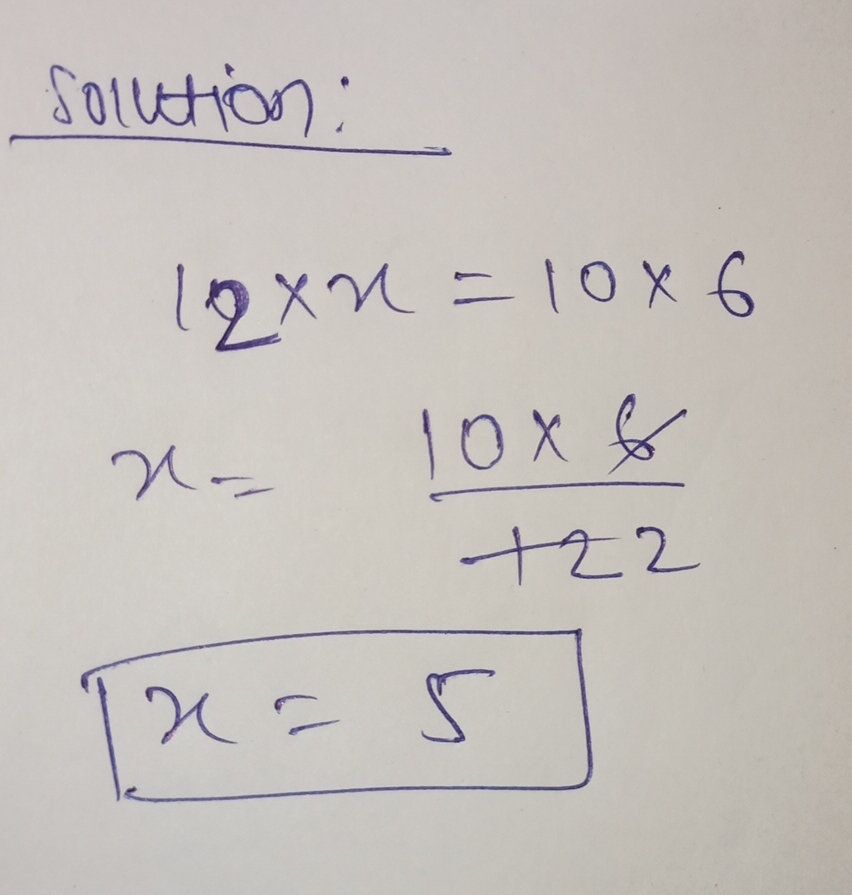 Solution:
12 × x = 10 × 6
x = 10 × 6
12 2
x = 5